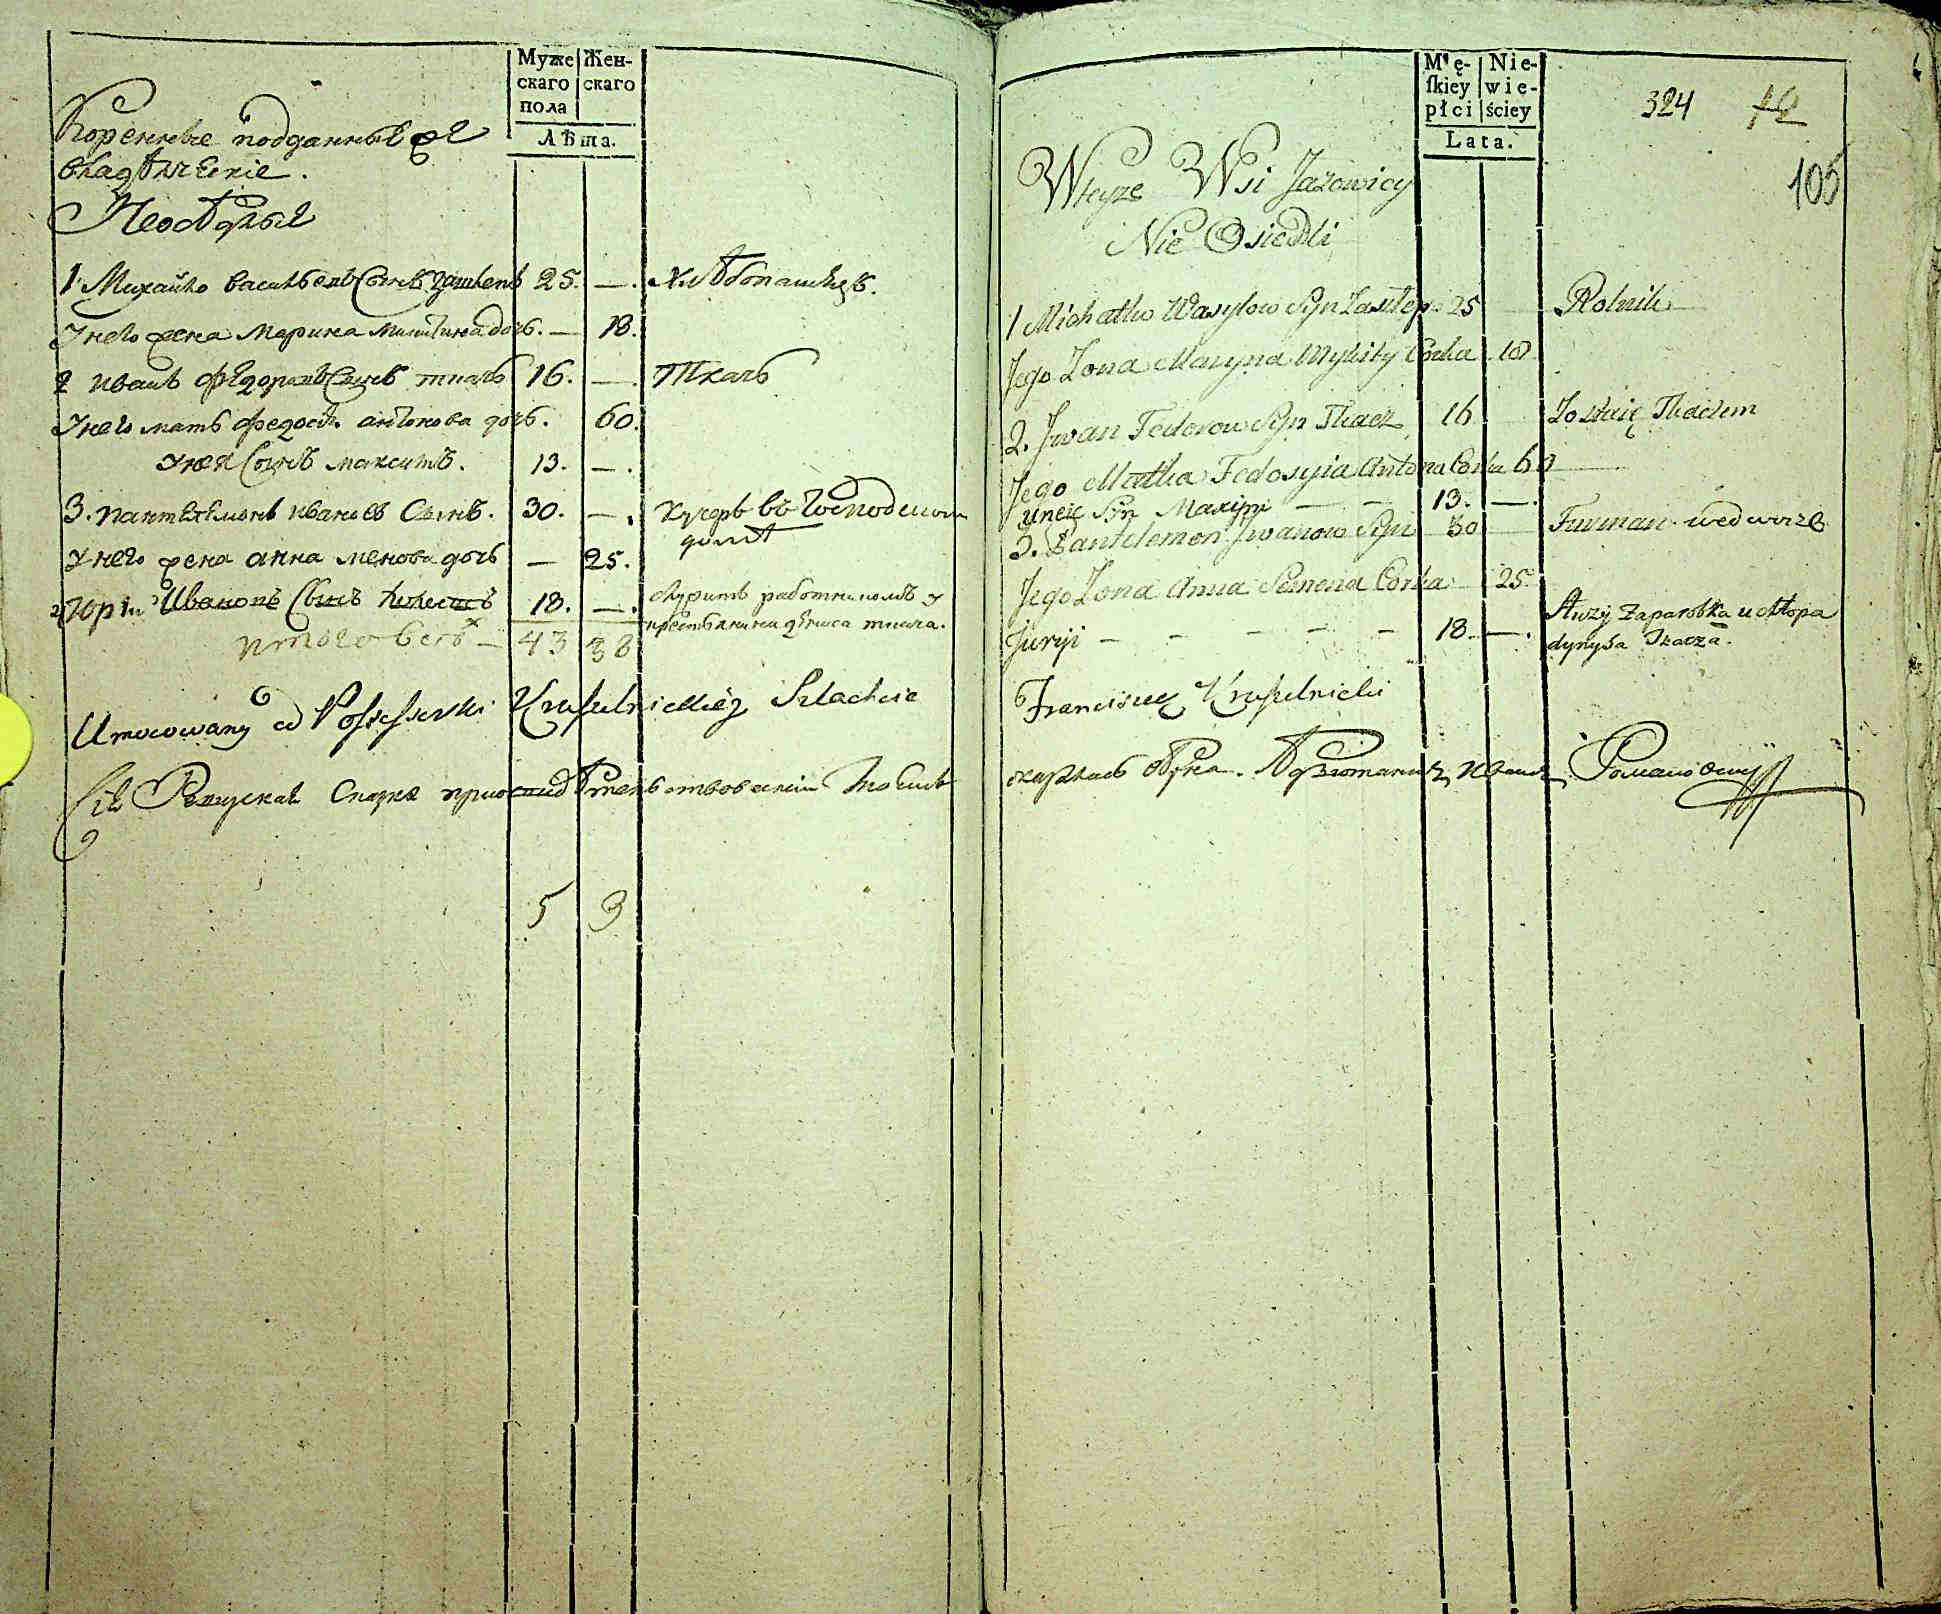 Муже
скаго
пола
Жен-
скаго
Лѣта.
Коренные подданные ея
владѣнiе.
Неоседлые
1 Михайло васильевъ Сынъ 25. — . хлѣбопашецъ.
У него жена Марина Микитина дочь. — 18.
2 иванъ федоровъ Сынъ ткачъ 16. — . Ткачъ
У него мать Федося антонова дочь. 60.
У нея Сынъ максимъ. 13. — .
3. пантелемонъ ивановъ Сынъ. 30. — . кучеръ въ господскомъ
домѣ
У него жена анна дочь — 25.
Юрiй Ивановъ Сынъ 18. — . служитъ работникомъ у
крестьянина дениса ткача.
итого всехъ — 43 38
Umocowany od Possessorki Krusulnickiej Szlachcic
Сiя Ревизская Сказка
5 3
Mę-
skiey
płci
Nie-
wie-
ściey
Lata.
324 12
105
Wteyże Wsi Jazowicy
Nie Osiedli
1 Michałko Wasylow Syn 25 Rolnik
Jego Zona Maryna Mykity Corka 18
2. Jwan Fedorow Syn Tkacz 16 Zostaię Tkaczem
Jego Matka Fedosyia Antona Corka 60
uneię Syn Maxijm — — 13. — .
3. Pantelemon Jwanow Syn 30 Furman we dworze
Jego Zona Anna Semena Corka 25
Jurÿi — — — — — 18 — . służy Zaparobka u chłopa
dynysa Tkacza.
Franciszek Krusulnicki
Романовичъ